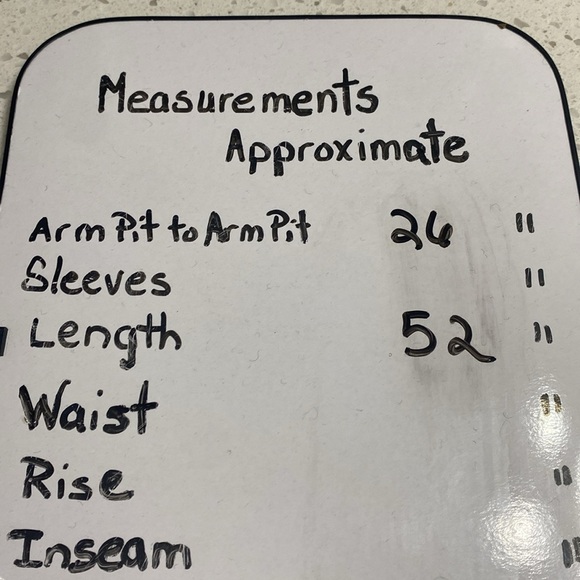 Measurements
Approximate
Arm Pit to Arm Pit 26 "
Sleeves "
Length 52 "
Waist "
Rise "
Inseam "